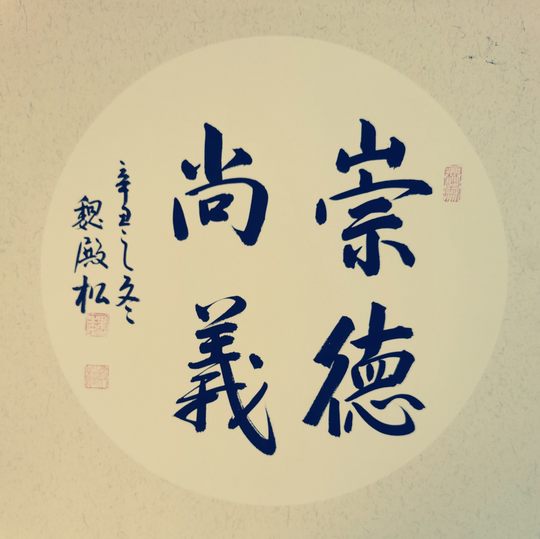 崇德
尚義
辛丑之冬
魏殿松